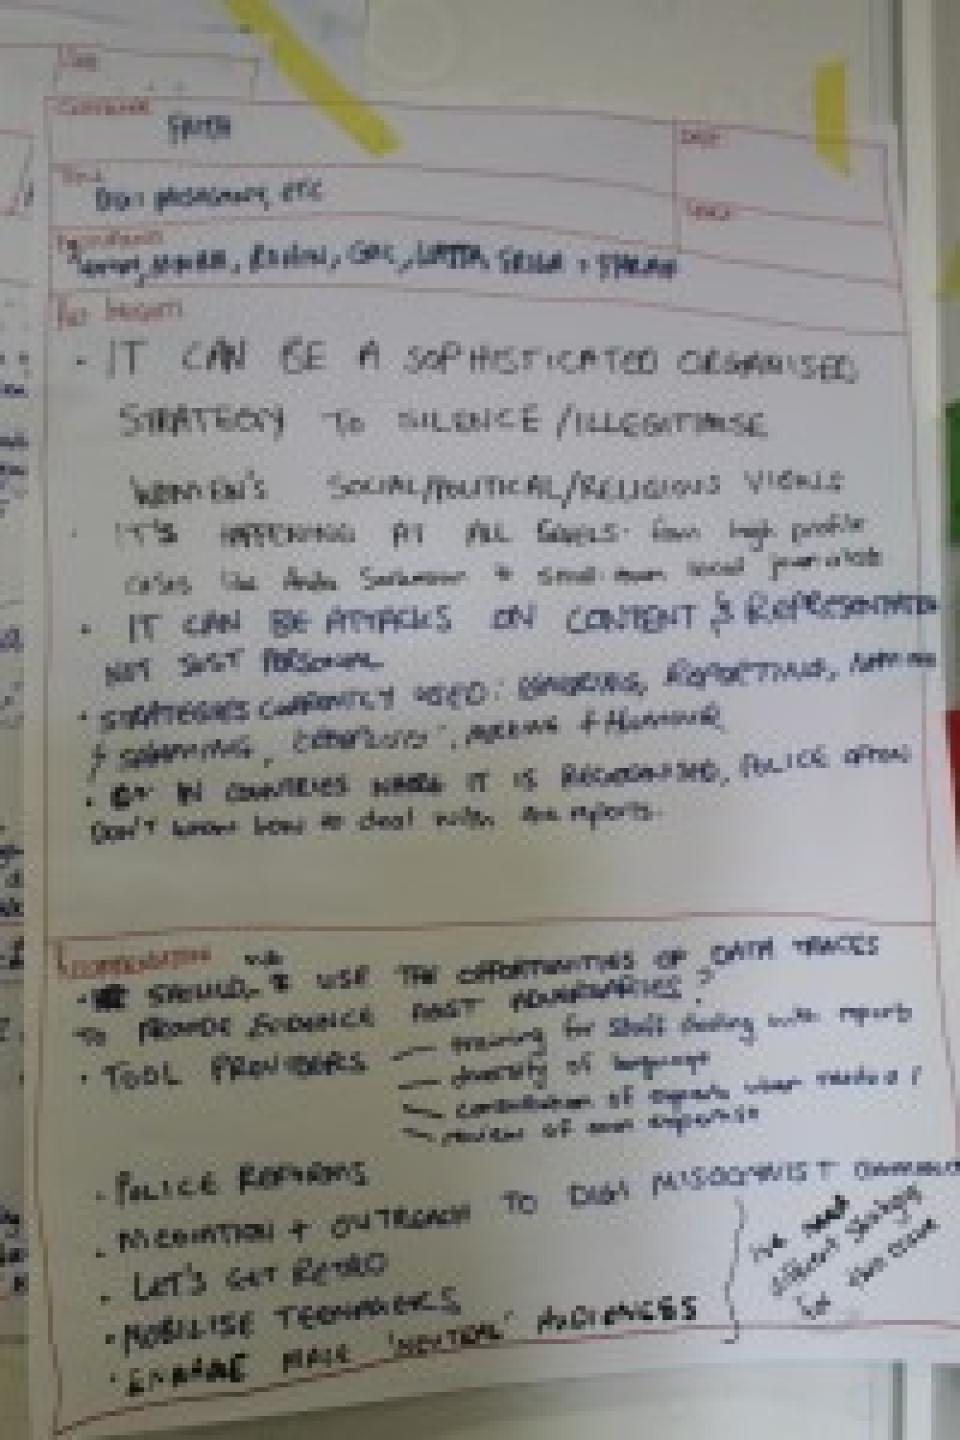 Faith
Date
Title
Digi misogyny, etc
Space
Participants
Key Insights
• IT CAN BE A SOPHISTICATED ORGANISED
STRATEGY TO SILENCE/ILLEGITIMISE
WOMEN'S SOCIAL/POLITICAL/RELIGIOUS VIEWS
• IT'S HAPPENING AT ALL LEVELS- from high profile
cases like Anita Sarkeesian to small-town local journalists
• IT CAN BE ATTACKS ON CONTENT & REPRESENTATION
NOT JUST PERSONAL
• STRATEGIES CURRENTLY USED: IGNORING, REPORTING, NAMING
+ SHAMING, MOCKING + HUMOUR
• IN COUNTRIES WHERE IT IS RECOGNISED, POLICE OFTEN
DON'T know how to deal with the reports.
Recommendation
• SHOULD WE USE THE OPPORTUNITIES OF DATA TRACES
TO PROVIDE EVIDENCE AGST ADVERSARIES?
• TOOL PROVIDERS — training for staff dealing with reports
— diversity of language
— consultation of experts when needed
— review of own expertise
• POLICE REFORMS
• MEDIATION + OUTREACH TO DIGI MISOGYNIST
• LET'S GET RETRO
• MOBILISE TEENAGERS
• ENGAGE MALE 'NEUTRAL' AUDIENCES
we need
different strategies
for